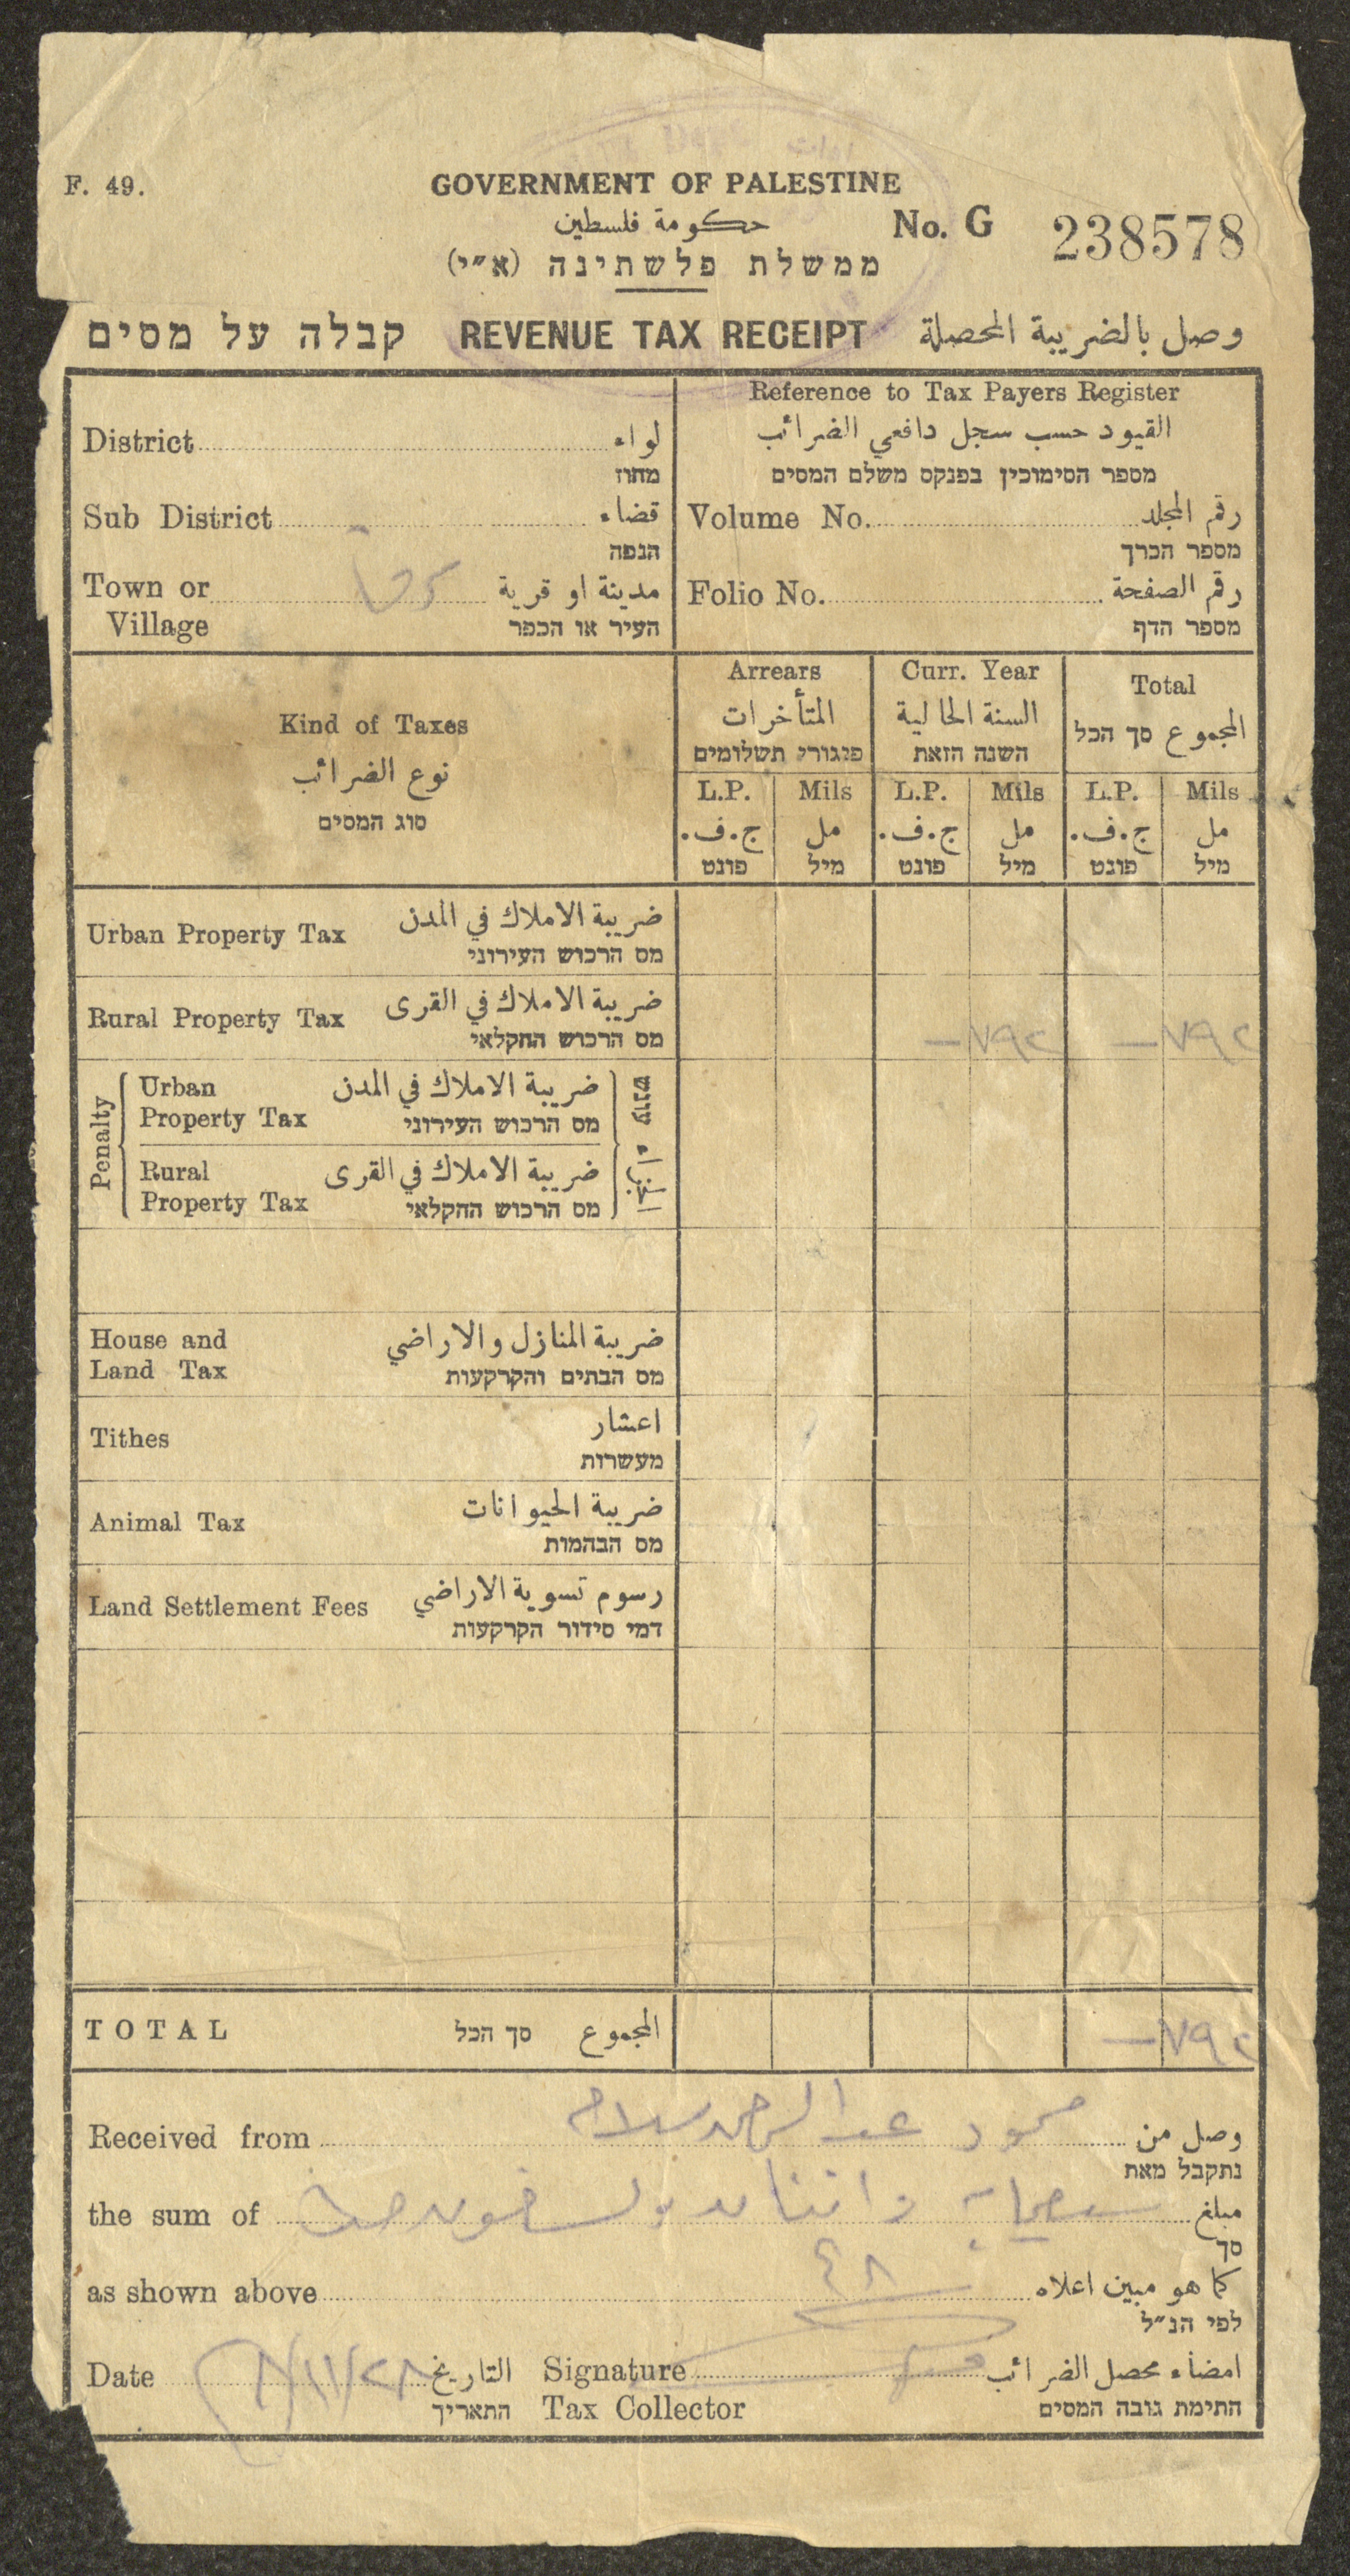 F. 49.
GOVERNMENT OF PALESTINE
حكومة فلسطين
No. G 238578
ממשלת פלשתינה (א״י)
קבלה על מסים REVENUE TAX RECEIPT وصل بالضريبة المحصلة
Reference to Tax Payers Register
القيود حسب سجل دافعي الضرائب
מספר הסימוכין בפנקס משלם המסים
District لواء
מחוז
Sub District قضاء
הנפה
Volume No. رقم المجلد
מספר הכרך
Town or Village مدينة او قرية
העיר או הכפר
Folio No. رقم الصفحة
מספר הדף
Kind of Taxes
نوع الضرائب
סוג המסים
Arrears
المتأخرات
פיגורי תשלומים
Curr. Year
السنة الحالية
השנה הזאת
Total
المجموع סך הכל
L.P. Mils L.P. Mils L.P. Mils
ج.ف. مل ج.ف. مل ج.ف. مل
פונט מיל פונט מיל פונט מיל
Urban Property Tax ضريبة الاملاك في المدن
מס הרכוש העירוני
Rural Property Tax ضريبة الاملاك في القرى
מס הרכוש החקלאי
— ٧٩٢ — ٧٩٢
Penalty
Urban Property Tax ضريبة الاملاك في المدن
מס הרכוש העירוני
עונש
Rural Property Tax ضريبة الاملاك في القرى
מס הרכוש החקלאי
House and Land Tax ضريبة المنازل والاراضي
מס הבתים והקרקעות
Tithes اعشار
מעשרות
Animal Tax ضريبة الحيوانات
מס הבהמות
Land Settlement Fees رسوم تسوية الاراضي
דמי סידור הקרקעות
TOTAL סך הכל المجموع — ٧٩٢
Received from محمود عبد الرحمن سلامه وصل من
נתקבל מאת
the sum of سبعماية واثنان مبلغ
סך
as shown above كما هو مبين اعلاه
לפי הנ״ל
Date التاريخ Signature امضاء محصل الضرائب
התאריך Tax Collector חתימת גובה המסים